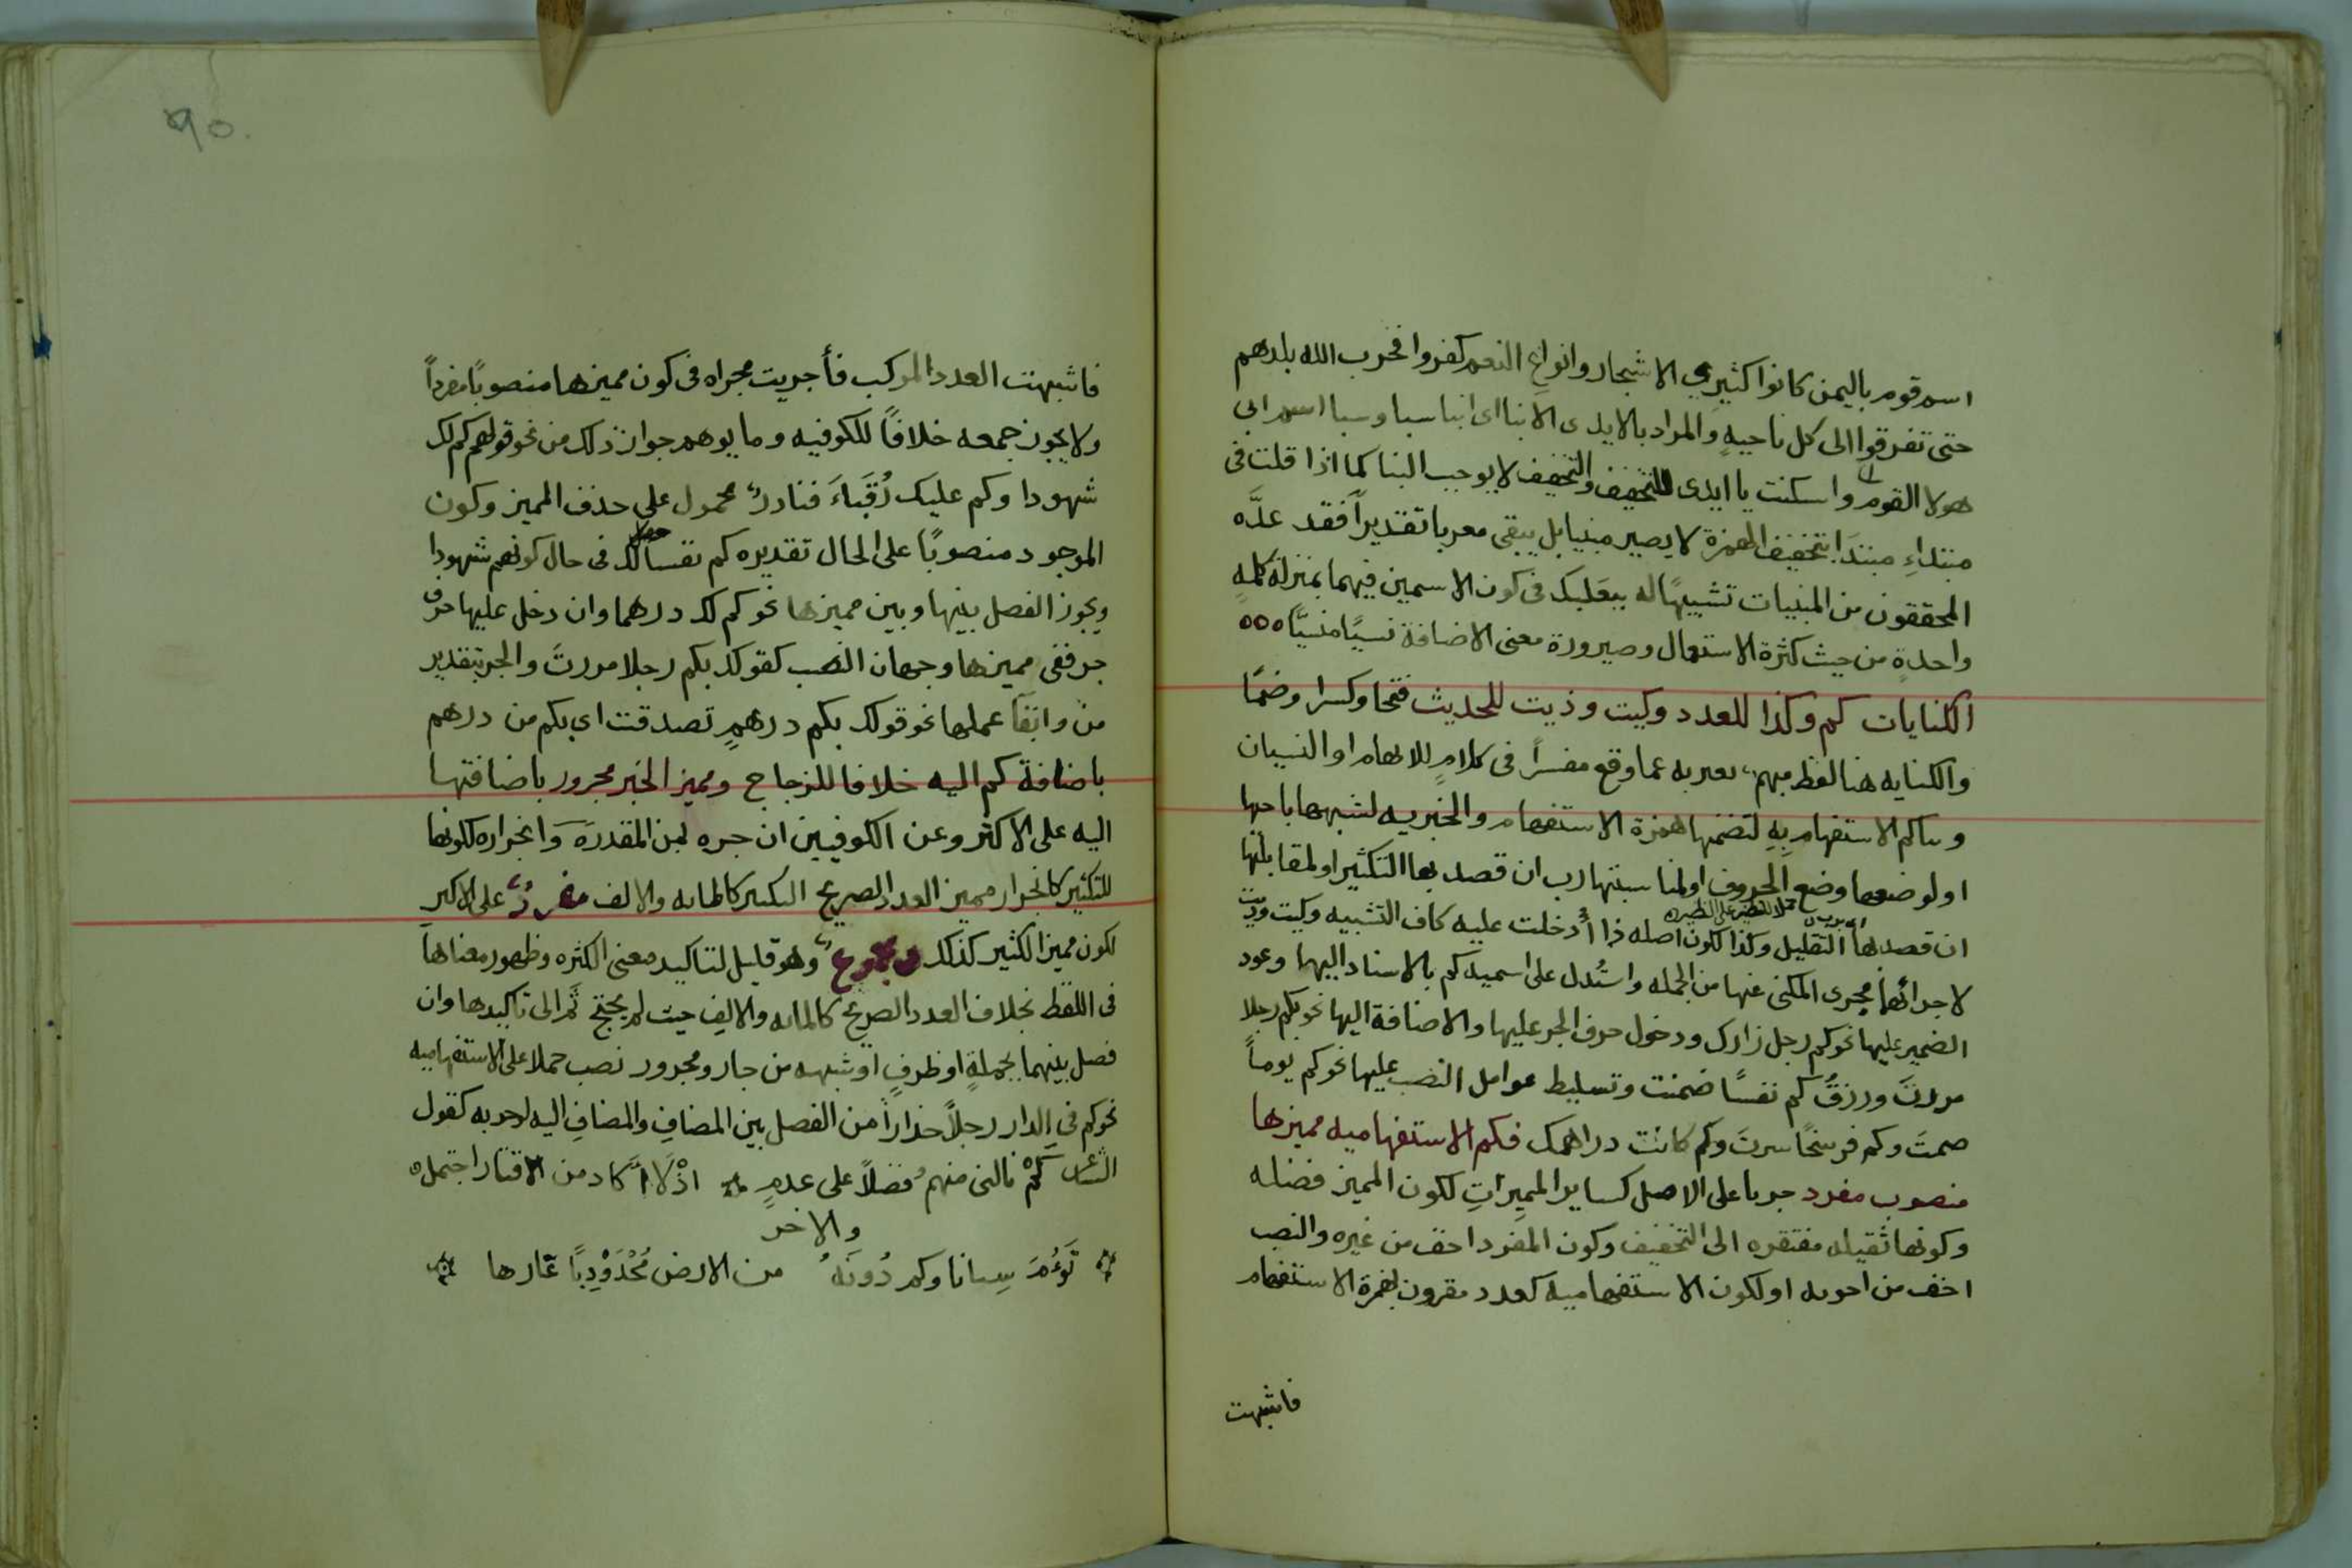 اسم قوم باليمن كانوا كثيري الاشجار وانواع النعم كفروا فخرب الله بلدهم
حتى تفرقوا الى كل ناحيةٍ والمراد بالايدى الابنا اى ابنا سبا وسبا اسم ابى
هولا القوم واسكنت يا ايدى للتخفيف والتخفيف لا يوجب البنا كما اذا قلت فى
مبتداءِ مبتدَا بتخفيف الهمزة لا يصير مبنيا بل يبقى معربا تقديراً فقد عدَّه
المحققون من المبنيات تشبيهًا له ببعلبك فى كون الاسمين فيهما بمنزلة كلمةٍ
واحدةٍ من حيث كثرة الاستعمال وصيرورة معنى الاضافة نسيًا منسيًّا ٥٥٥
الكنايات كم وكذا للعدد وكيت وذيت للحديث فتحا وكسرا وضمًا
والكنايه هنا لفظ مبهم يعبر به عما وقع مفسراً فى كلامٍ للابهام او النسيان
وبنا كم الاستفهاميهِ لتضمنها همزة الاستفهام والخبريه لشبهها باختها
او لوضعها وضع الحروف او لمناسبتها رب ان قصد بها التكثير او لمقابلتها
حملا للنظير على النظير
ان قصد بها التقليل وكذا لكون اصله ذا أُدخلت عليه كاف التشبيه وكيت وذيت
لاجرائهما مجرى المكنى عنها من الجمله واستُدل على اسمية كم بالاسناد اليها وعود
الضمير عليها نحو كم رجل زارك ودخول حرف الجر عليها والاضافة اليها نحو بكم رجلا
مررتَ ورزقُ كم نفسًا ضمنت وتسليط عوامل النصب عليها نحو كم يوماً
صمتَ وكم فرسخًا سرتَ وكم كانت دراهمك فكم الاستفهاميه مميزها
منصوب مفرد جريا على الاصل كساير المميزاتِ لكون المميز فضله
وكونها ثقيله مفتقره الى التخفيف وكون المفرد اخف من غيره والنصب
اخف من اخويه او لكون الاستفهاميه كعدد مقرون بهمزة الاستفهام
فاشبهت
٩٥
فاشبهت العدد المركب فأجريت مجراه فى كون مميزها منصوبًا مفرداً
ولا يجوز جمعه خلافًا للكوفيه وما يوهم جواز ذلك من نحو قولهم كم لك
شهودا وكم عليك رُقَباءَ فنادرٌ محمول على حذف المميز وكون
الموجود منصوبًا على الحال تقديره كم نفسا لك فى حال كونهم شهودا
ويجوز الفصل بينها وبين مميزها نحو كم لك درهما وان دخل عليها حرف
جر ففى مميزها وجهان النصب كقولك بكم رجلا مررتَ والجر بتقدير
من وابقآ عملها نحو قولك بكم درهمٍ تصدقت اى بكم من درهم
باضافة كم اليه خلافا للزجاج ومميز الخبر مجرور باضافتها
اليه على الاكثر وعن الكوفيين ان جره بمن المقدره وانجراره لكونها
للتكثير كانجرار مميز العدد الصريح الكثير كالمايه والالف مفردٌ على الاكثر
لكون مميز الكثير كذلك ومجموع وهو قليل لتاكيد معنى الكثره وظهور معناها
فى اللفظ بخلاف العدد الصريح كالمايه والالف حيث لم يحتج ثَم الى تاكيدها وان
فصل بينهما بجملةٍ او ظرفٍ او شبهه من جار ومجرور نصب حملا على الاستفهاميه
نحو كم فى الدار رجلاً حذاراً من الفصل بين المضافِ والمضافِ اليه لاجوبه كقول
كم نالنى منهم فضلاً على عدمٍ اذْ لَا أَكَاد من الاقتار احتمله
والاخر
تَؤُمَ سِنانا وكم دُونَهُ من الارض مُحْدَوْدِبًا غارها